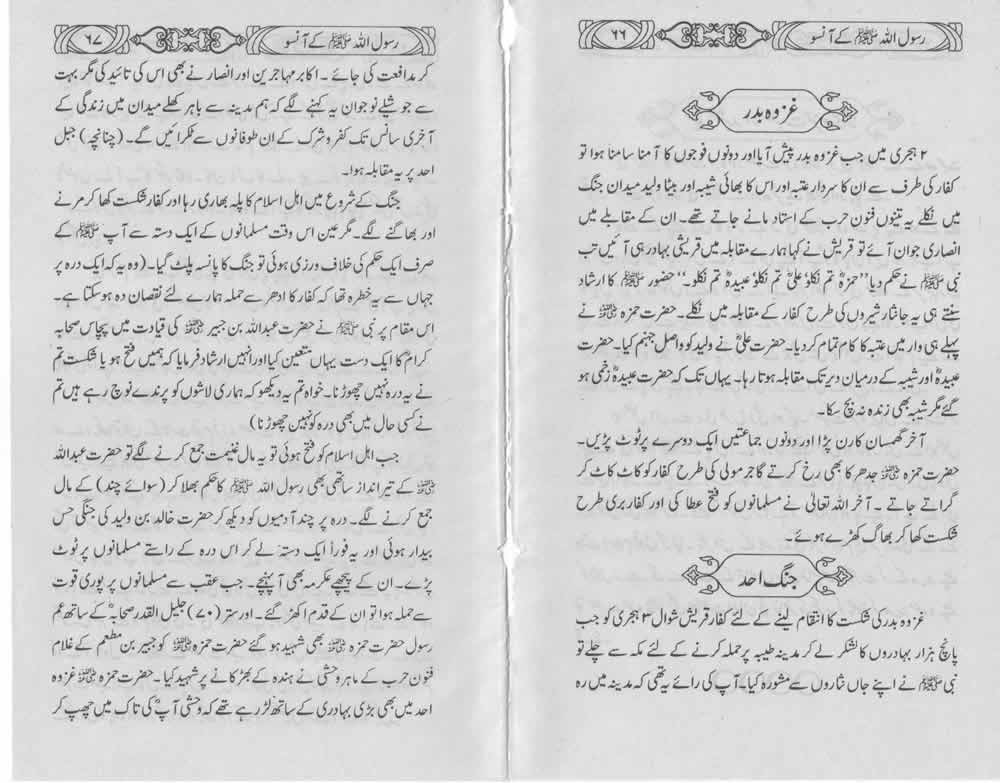 رسول اللہ ﷺ کے آنسو
۶۶
غزوہ بدر
۲ ہجری میں جب غزوہ بدر پیش آیا اور دونوں فوجوں کا آمنا سامنا ہوا تو
کفار کی طرف سے ان کا سردار عتبہ اور اس کا بھائی شیبہ اور بیٹا ولید میدان جنگ
میں نکلے یہ تینوں فنون حرب کے استاد مانے جاتے تھے۔ ان کے مقابلے میں
انصاری جوان آئے تو قریش نے کہا ہمارے مقابلہ میں قریشی بہادر ہی آئیں تب
نبی ﷺ نے حکم دیا ’’حمزہؓ تم نکلو، علیؓ تم نکلو، عبیدہؓ تم نکلو۔‘‘ حضور ﷺ کا ارشاد
سنتے ہی یہ جانثار شیروں کی طرح کفار کے مقابلہ میں نکلے۔ حضرت حمزہ ؓ نے
پہلے ہی وار میں عتبہ کا کام تمام کر دیا۔ حضرت علیؓ نے ولید کو واصل جہنم کیا۔ حضرت
عبیدہؓ اور شیبہ کے درمیان دیر تک مقابلہ ہوتا رہا۔ یہاں تک کہ حضرت عبیدہؓ زخمی ہو
گئے مگر شیبہ بھی زندہ نہ بچ سکا۔
آخر گھمسان کا رن پڑا اور دونوں جماعتیں ایک دوسرے پر ٹوٹ پڑیں۔
حضرت حمزہ ؓ جدھر کا بھی رخ کرتے گاجر مولی کی طرح کفار کو کاٹ کاٹ کر
گراتے جاتے ۔ آخر اللہ تعالیٰ نے مسلمانوں کو فتح عطا کی اور کفار بری طرح
شکست کھا کر بھاگ کھڑے ہوئے۔
جنگ احد
غزوہ بدر کی شکست کا انتقام لینے کے لئے کفار قریش شوال ۳ ہجری کو جب
پانچ ہزار بہادروں کا لشکر لے کر مدینہ طیبہ پر حملہ کرنے کے لئے مکہ سے چلے تو
نبی ﷺ نے اپنے جاں نثاروں سے مشورہ کیا۔ آپ کی رائے یہ تھی کہ مدینہ میں رہ
رسول اللہ ﷺ کے آنسو
۶۷
کر مدافعت کی جائے ۔ اکابر مہاجرین اور انصار نے بھی اس کی تائید کی مگر بہت
سے جوشیلے نوجوان یہ کہنے لگے کہ ہم مدینہ سے باہر کھلے میدان میں زندگی کے
آخری سانس تک کفر و شرک کے ان طوفانوں سے ٹکرائیں گے۔ (چنانچہ) جبل
احد پر یہ مقابلہ ہوا۔
جنگ کے شروع میں اہل اسلام کا پلہ بھاری رہا اور کفار شکست کھا کر مرنے
اور بھاگنے لگے۔ مگر عین اس وقت مسلمانوں کے ایک دستہ سے آپ ﷺ کے
صرف ایک حکم کی خلاف ورزی ہوئی تو جنگ کا پانسہ پلٹ گیا۔ (وہ یہ کہ ایک درہ پر
جہاں سے یہ خطرہ تھا کہ کفار کا ادھر سے حملہ ہمارے لئے نقصان دہ ہو سکتا ہے۔
اس مقام پر نبی ﷺ نے حضرت عبداللہ بن جبیر ؓ کی قیادت میں پچاس صحابہ
کرامؓ کا ایک دست یہاں متعین کیا اور انہیں ارشاد فرمایا کہ ہمیں فتح ہو یا شکست تم
نے یہ درہ نہیں چھوڑنا۔ خواہ تم یہ دیکھو کہ ہماری لاشوں کو پرندے نوچ رہے ہیں تم
نے کسی حال میں بھی درہ کو نہیں چھوڑنا)
جب اہل اسلام کو فتح ہوئی تو یہ مال غنیمت جمع کرنے لگے تو حضرت عبداللہ
ؓ کے تیر انداز ساتھی بھی رسول اللہ ﷺ کا حکم بھلا کر (سوائے چند) کے مال
جمع کرنے لگے۔ درہ پر چند آدمیوں کو دیکھ کر حضرت خالد بن ولید کی جنگی حس
بیدار ہوئی اور یہ فوراً ایک دستہ لے کر اس درہ کے راستے مسلمانوں پر ٹوٹ
پڑے۔ ان کے پیچھے عکرمہ بھی آ پہنچے۔ جب عقب سے مسلمانوں پر پوری قوت
سے حملہ ہوا تو ان کے قدم اکھڑ گئے۔ اور ستر (۷۰) جلیل القدر صحابہؓ کے ساتھ عم
رسول حضرت حمزہ ؓ بھی شہید ہو گئے حضرت حمزہ ؓ کو جبیر بن مطعم کے غلام
فنون حرب کے ماہر وحشی نے ہندہ کے بھڑکانے پر شہید کیا۔ حضرت حمزہ ؓ غزوہ
احد میں بھی بڑی بہادری کے ساتھ لڑ رہے تھے کہ وحشی آپؓ کی تاک میں چھپ کر